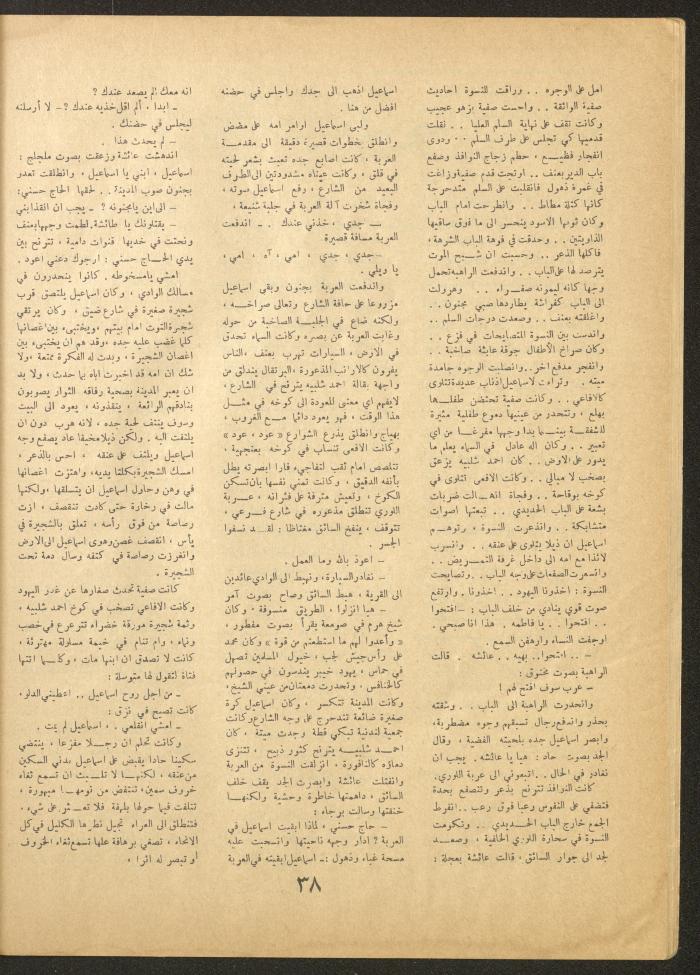 امل على الوجوه . . وراقت للنسوة احاديث
صفية الواثقة . . واحست صفية بزهو عجيب
وكانت تقف على نهاية السلم العليا . . نقلت
قدميها كي تجلس على طرف السلم . . ودوى
انفجار فظيع ، حطم زجاج النوافذ وصفع
باب الدير بعنف . . ارتجت قدم صفية وزاغت
في غمرة ذهول فانقلبت على السلم متدحرجة
كانها كتلة مطاط . . وانطرحت امام الباب
وكان ثوبها الاسود ينحسر الى ما فوق ساقيها
الذاويتين . . وحدقت في فوهة الباب الشرهة ،
فاكلها الذعر . . وحسبت ان شبح الموت
يترصد لها على الباب . . واندفعت الراهبة تحمل
وجها كانه ليمونه صفراء . . وهرولت
الى الباب كفراشة يطاردها صبي مجنون . .
واغلقته بعنف . . وصعدت درجات السلم . .
واندست بين النسوة المتصايحات في فزع . .
وكان صراخ الأطفال جوقة عابثة صاخبة . .
وانفجر مدفع اخر . . وانصلبت الوجوه جامدة
ميتة . وتراءت لاسماعيل اذناب عديدة تتلوى
كالافاعي . . وكانت صفية تحتضن طفلها
بهلع ، وتتحدر من عينيها دموع طفلية مثيرة
للشفقة بينما بدا وجهها مفرغا من اي
تعبير . . وكان اله عادل في السماء يعلم ما
يدور على الارض . . كان احمد شلبيه يزعق
بصخب لا مبالي . . وكانت الافعى تثلوى في
كوخه بوقاحة . . وفجاة انهالت ضربات
بشعة على الباب الحديدي . . تبعتها اصوات
متشابكة . . واندعرت النسوة ، وتوهم
اسماعيل ان ذيلا يتلوى على عنقه . . وانسرب
لائذا مع امه الى داخل غرفة التمريض . .
وانسمرت الصفعات على وجه الباب . . وتصايحت
النسوة : اخذونا اليهود . . اخذونا . . وارتفع
صوت قوي ينادي من خلف الباب : - افتحوا
. . افتحوا . . يا فاطمه . هذا انا صبحي .
اوجفت النساء وارهفن السمع .
- . . افتحوا . . بهيه . . عائشه . قالت
الراهبة بصوت مخنوق :
- عرب سوف افتح لهم !
وانحدرت الراهبة الى الباب . . وشقته
بحذر واندفع رجال تسبقهم وجوه مضطربة ،
وابصر اسماعيل جده بلحيته الفضية ، وقال
الجد بصوت حاد : هيا يا عائشه . يجب ان
نغادر في الحال . . اتبعوني الى عربة اللوري .
كانت النوافذ تترنح بذعر وتنصفع بحدة
فتضفي على النفوس رعبا فوق رعب . . انفرط
الجمع خارج الباب الحديدي . . وتكومت
النسوة في سحارة اللوري الخلفية ، وصعد
الجد الى جوار السائق . قالت عائشة بعجلة :
اسماعيل اذهب الى جدك واجلس في حضنه
افضل من هنا .
ولبى اسماعيل اوامر امه على مضض
وانطلق بخطوات قصيرة دقيقة الى مقدمة
العربة ، كانت اصابع جده تعبث بشعر لحيته
في قلق ، وكانت عيناه مشدودتين الى الطرف
البعيد من الشارع ، رفع اسماعيل صوته ،
وفجاة شخرت آلة العربة في جلبة شنيعة ،
- جدي ، خذني عندك . - اندفعت
العربة مسافة قصيرة
- جدي ، جدي ، امي ، آه ، امي ،
يا ويلي .
واندفعت العربة بجنون وبقى اسماعيل
مزروعا على حافة الشارع وتعالى صراخه ،
ولكنه ضاع في الجلبة الصاخبة من حوله
وغابت العربة عن بصره وكانت السماء تحدق
في الارض ، السيارات تهرب بعنف ، الناس
يفرون كالارانب المذعورة ، البرتقال يندلق من
واجهة بقالة احمد شلبيه يترنح في الشارع ،
لا يفهم اي معنى للعودة الى كوخه في مثل
هذا الوقت ، فهو يعود دائما مع الغروب ،
بهياج وانطلق يذرع الشوارع « عود ، عود »
وكانت الافعى تنساب في كوخه بعنجهية ،
تتلصص امام ثقب لتفاجيء فارا ابصرته يطل
بأنفه الدقيق ، وكانت تمني نفسها بان تسكن
الكوخ ، وتعيش مترفة على فئرانه ، عربة
اللوري تنطلق مذعوره في شارع فرعي ،
تتوقف ، ينفخ السائق مغتاظا : لقد نسفوا
الجسر .
- اعوذ بالله وما العمل .
- نغادر السيارة ، ونهبط الى الوادي عائدين
الى القرية ، هبط السائق وصاح بصوت آمر
- هيا انزلوا ، الطريق منسوفة ، وكان
شيخ هرم في صومعة يقرأ بصوت مفطور ،
« وأعدوا لهم ما استطعتم من قوة » وكان محمد
على رأس جيش لجب ، خيول المسلمين تصهل
في حماس ، يهود خيبر يندسون في حصونهم
كالخنافس ، وتحدرت دمعتان من عيني الشيخ ،
وكانت المدينة تتكسر ، وكان اسماعيل كرة
صغيرة ضائعة تتدحرج على وجه الشارع وكانت
جمعية لندنية تبكي قطة وجدت ميتة ، كان
احمد شلبيه يترنح كثور ذبيح ، تتنزى
دماؤه كالنافورة ، انزلقت النسوة من العربة
وانفتلت عائشة وابصرت الجد يقف خلف
السائق ، داهمتها خاطرة وحشية ولكنها
خنقتها وسالت برجاء :
- حاج حسني ، لماذا ابقيت اسماعيل في
العربة ? ادار وجهه ناحيتها وانسحبت عليه
مسحة غباء وذهول : - اسماعيل ابقيته في العربة
انه معك الم يصعد عندك ?
- ابدا ، ألم اقل خذيه عندك ? - لا أرسلته
ليجلس في حضنك .
- لم يحدث هذا .
اندهشت عائشة وزعقت بصوت ملجلج :
اسماعيل ، ابني يا اسماعيل ، وانطلقت تعدر
بجنون صوب المدينة . . لحقها الحاج حسني :
- الى اين يا مجنونه ? - يجب ان انقذ ابني
- يقتلونك يا طائشة . لطمت وجهها بعنف
ونحتت في خديها قنوات دامية ، تترنح بين
يدي الحاج حسني : ارجوك دعني اعود .
امشي يا مسخوطه . كانوا ينحدرون في
مسالك الوادي ، وكان اسماعيل يلتصق قرب
شجيرة صغيرة في شارع ضيق ، وكان يرتقي
شجيرة التوت امام بيتهم ، ويختبيء بين اغصانها
كلما غضب عليه جده ، وقد هم ان يختبيء بين
اغصان الشجيرة ، وبدت له الفكرة ممتعة ، ولا
شك ان امه قد اخبرت اباه بما حدث ، ولا بد
ان يعبر المدينة بصحبة رفاقه الثوار يصوبون
بنادقهم الرائعة ، ينقذونه ، يعود الى البيت
وسوف ينتف لحية جده ، لانه هرب دون ان
يلتفت اليه . ولكن ذيلا مخيفا عاد يصفع وجه
اسماعيل ويلتف على عنقه ، احس بالذعر ،
امسك الشجيرة بكلتا يديه ، واهتزت اغصانها
في وهن وحاول اسماعيل ان يتسلقها ، ولكنها
مالت في رخاوة حتى كادت تنقصف ، ازت
رصاصة من فوق رأسه ، تعلق بالشجيرة في
يأس ، انقصف غصن وهوى اسماعيل الى الارض
وانغرزت رصاصة في كتفه وسال دمه تحت
الشجيرة .
كانت صفية تحدث صغارها عن غدر اليهود
وكانت الافاعي تصخب في كوخ احمد شلبيه ،
وثمة شجيرة مورقة خضراء تترعرع في خصب
ونماء ، وام تنام في خيمة مسلولة مهترئة ،
كانت لا تصدق ان ابنها مات ، وكأنما انتها
فتاة لتقول لها متوسلة :
- من اجل روح اسماعيل . . اعطيني الدلو ،
كانت تصيح في نزق :
- امشي انقلعي . . اسماعيل لم يمت .
وكانت تحلم ان رجلا مفزعا ، ينتضي
سكينا حادا يقبض على اسماعيل يدني السكين
من عنقه ، لكنها لا تلبث ان تسمع ثغاء
خروف سمين ، تنتفض من نومها مبهورة ،
تتلفت فيما حولها بلهفة فلا تعثر على شيء ،
فتنطلق الى العراء تجيل نظرها الكليل في كل
الانحاء ، تصغي برهافة علها تسمع ثغاء الخروف
او تبصر له اثرا ،
٣٨